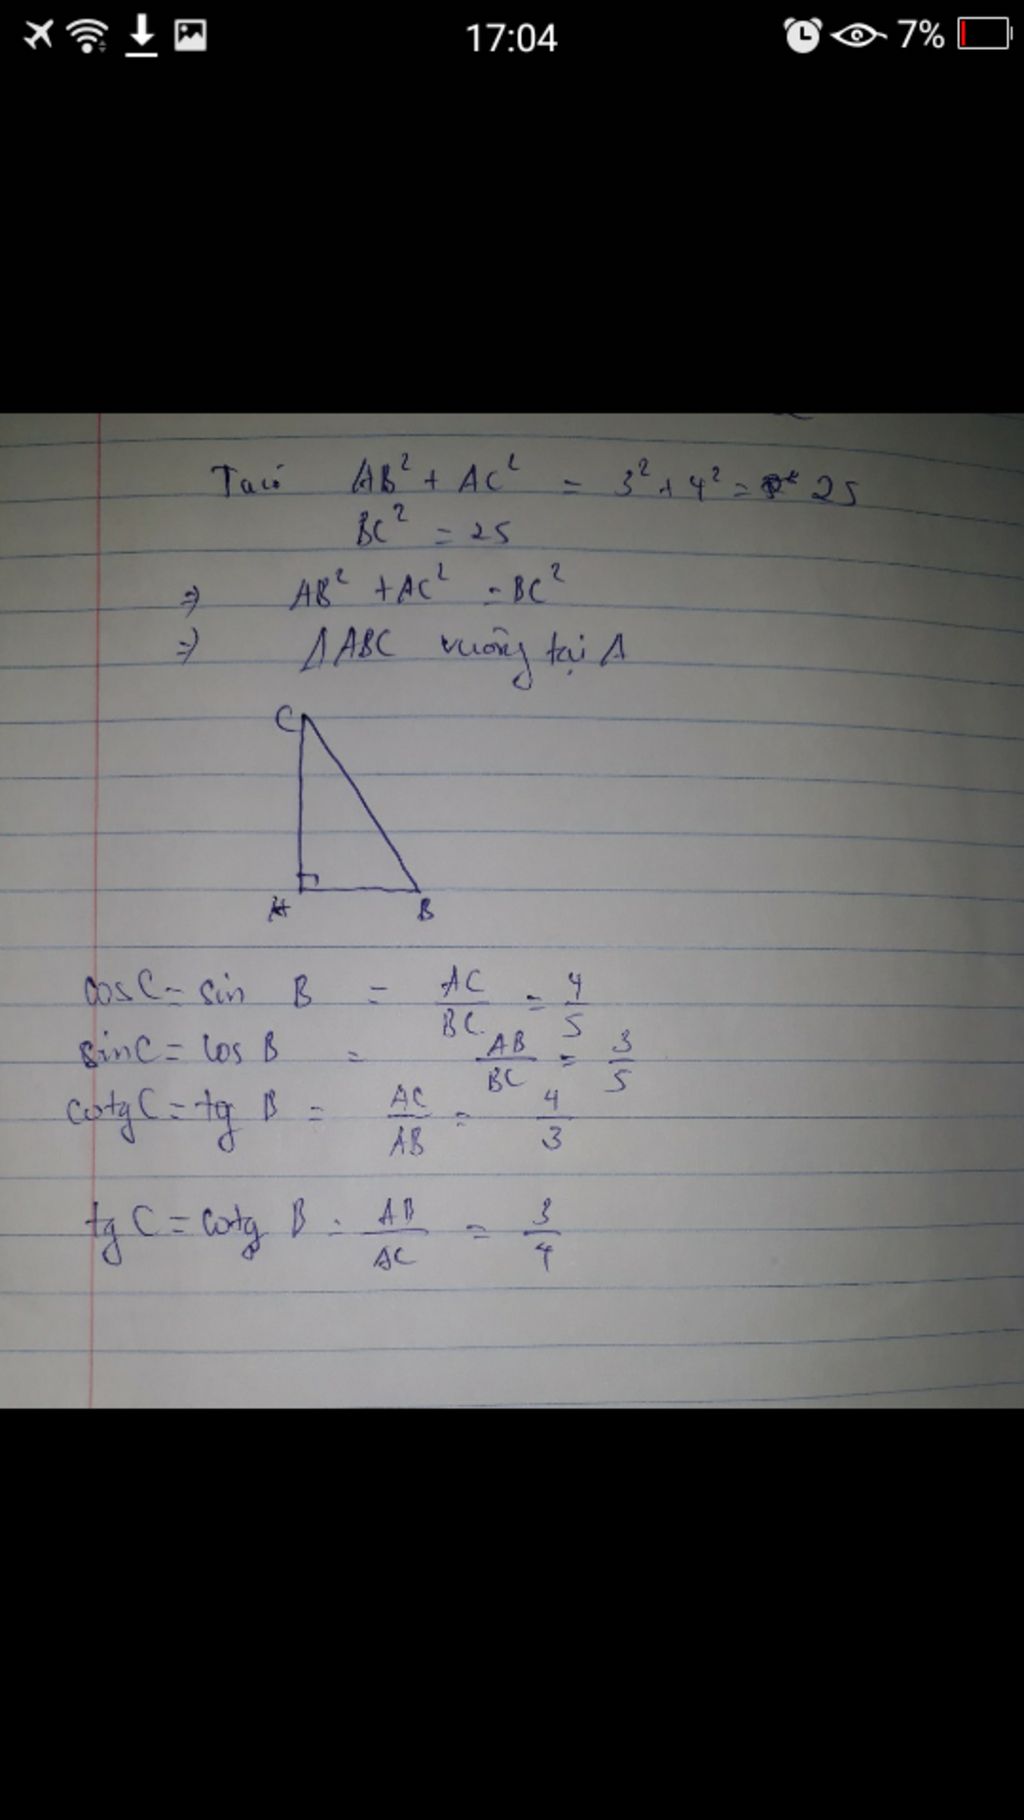 17:04 7%
Ta có AB² + AC² = 3² + 4² = 25
BC² = 25
⇒ AB² + AC² = BC²
⇒ ΔABC vuông tại A
C
A B
cosC = sin B = AC/BC = 4/5
sinC = cos B = AB/BC = 3/5
cotgC = tg B = AC/AB = 4/3
tg C = cotg B = AB/AC = 3/4